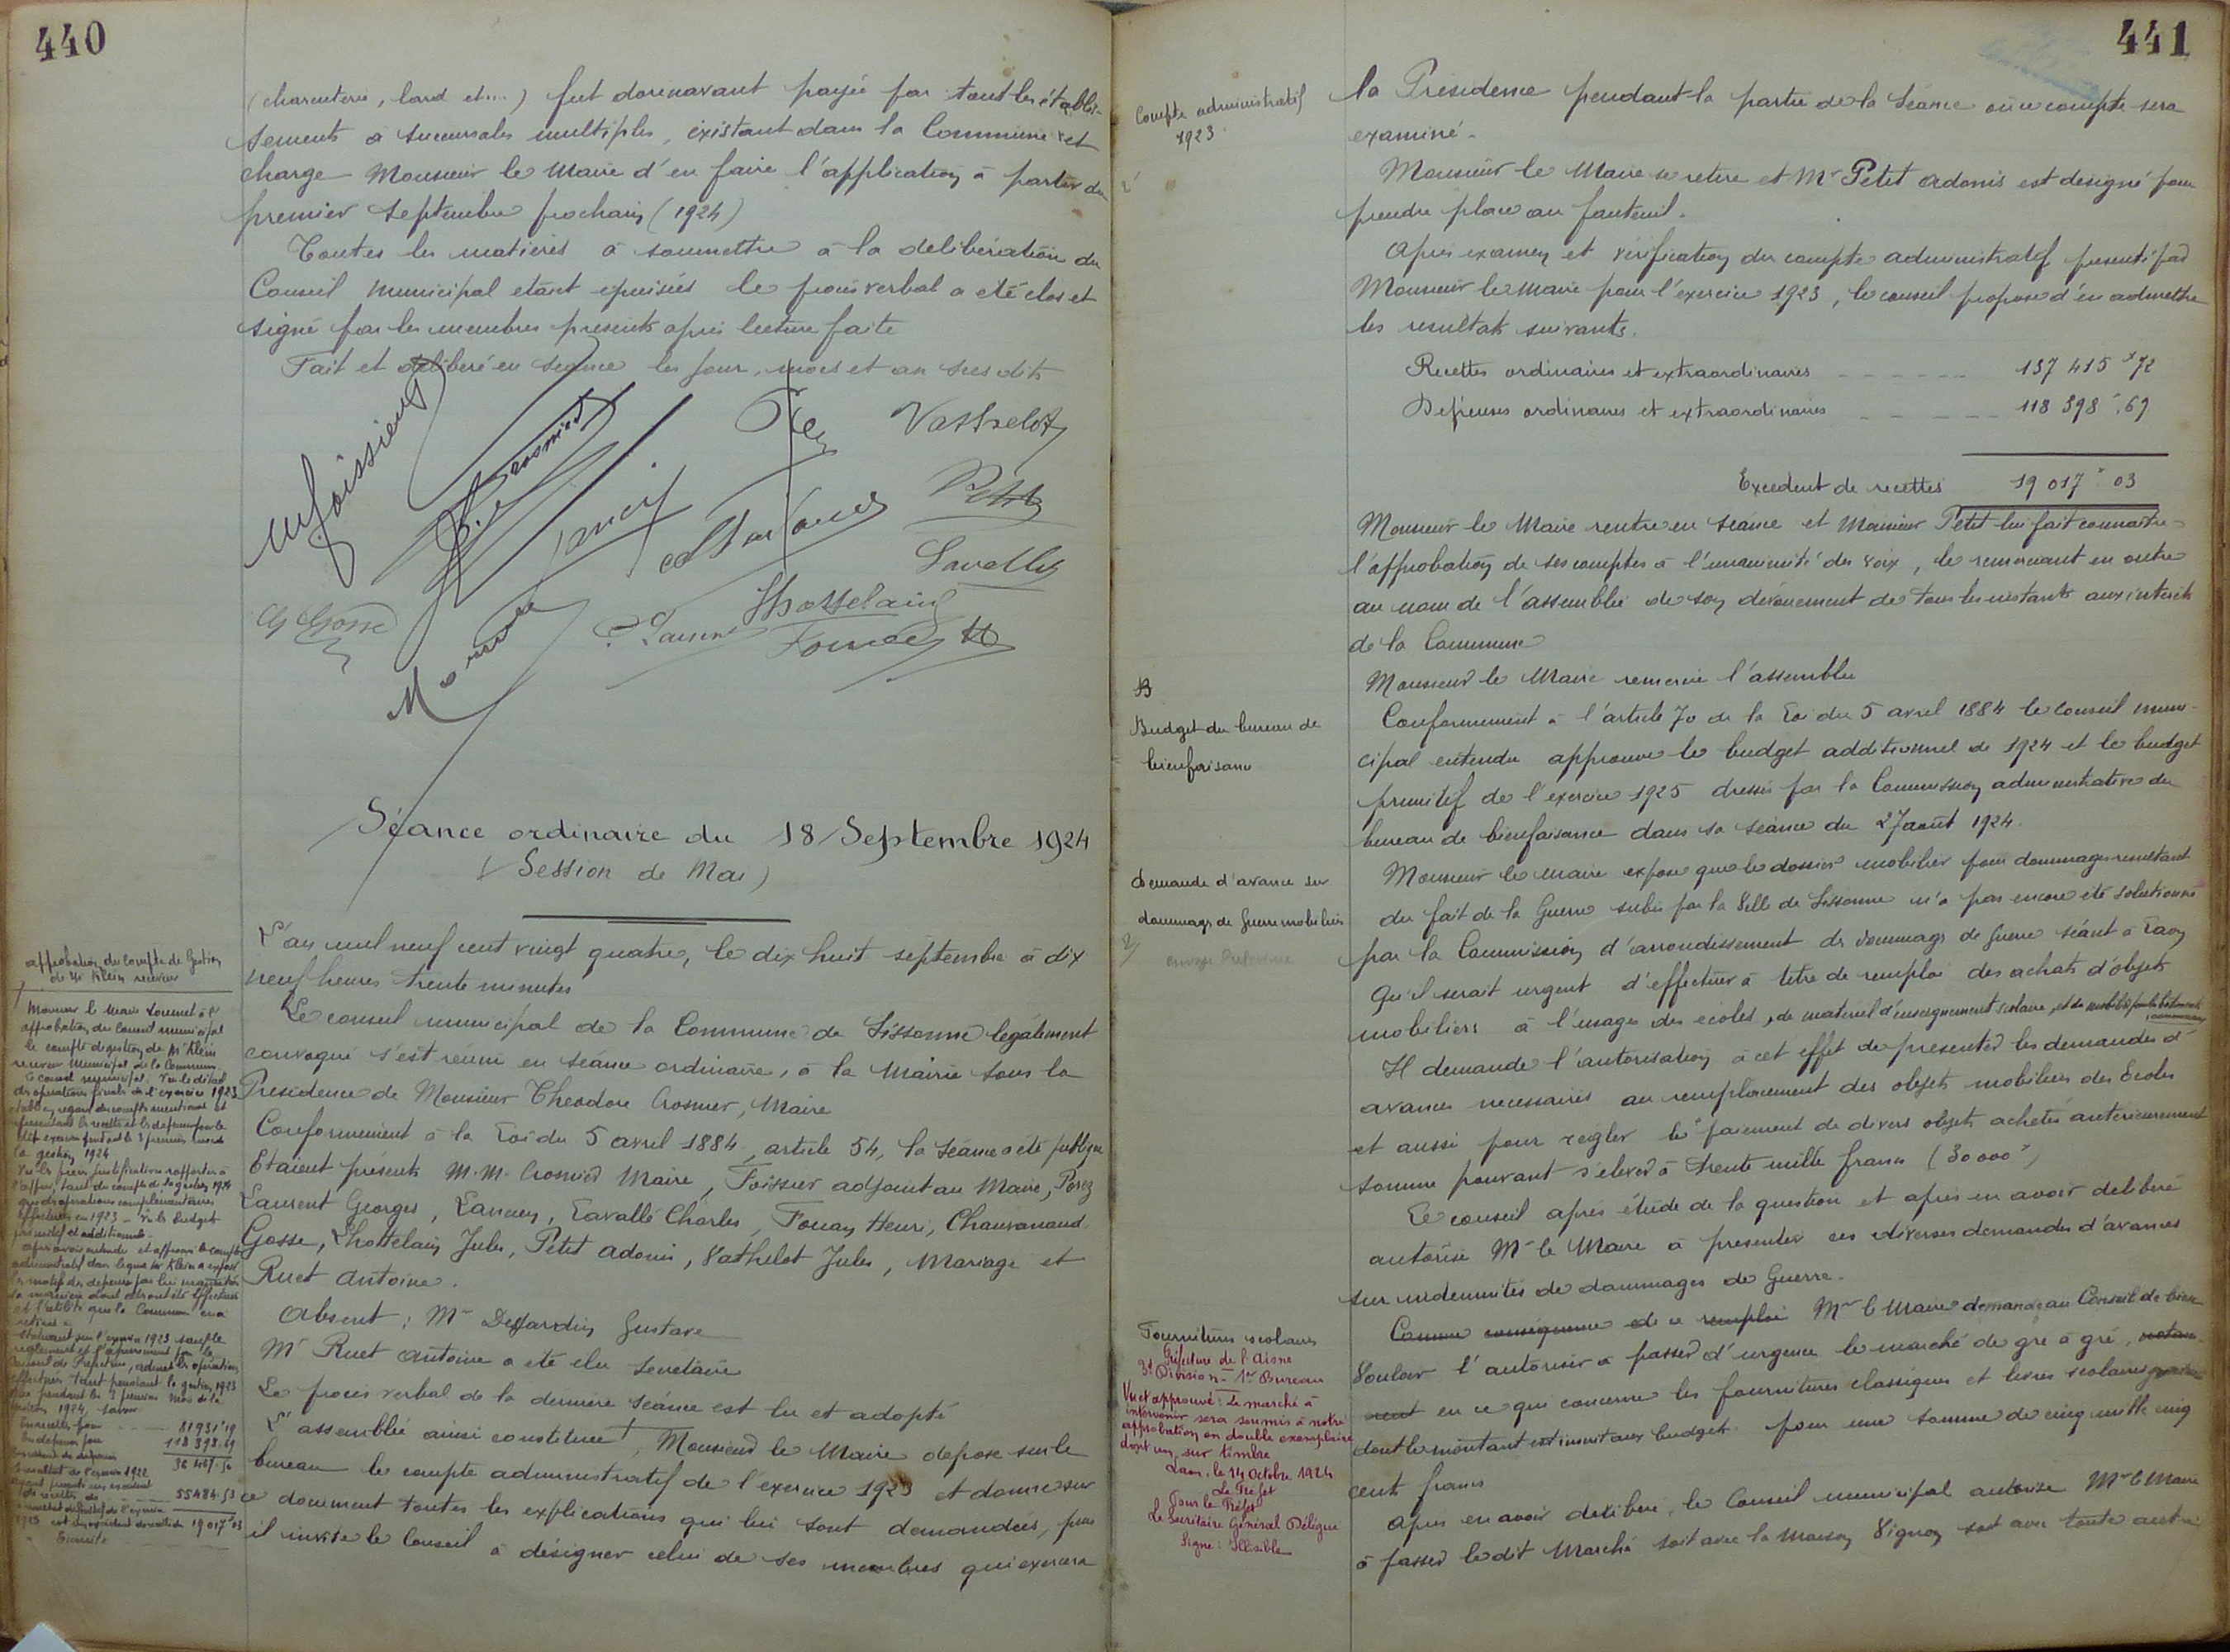 440
(charcuterie, lard etc...) fut dorénavant payée par tout les établis-
sements à succursales multiples, existant dans la Commune et
charge Monsieur le Maire d'en faire l'application à partir du
premier Septembre prochain (1924)
Toutes les matières à soumettre à la délibération du
Conseil Municipal étant épuisées le procès verbal a été clos et
signé par les membres présents après lecture faite
Fait et délibéré en séance les jour, mois et an sus dits
Vathelot
Petit
Lavallé
Lhottelain
G Gosse
Séance ordinaire du 18 Septembre 1924
(Session de Mai)
L'an mil neuf cent vingt quatre, le dix huit septembre à dix
neuf heures trente minutes
Le conseil municipal de la Commune de Sissonne légalement
convoqué s'est réuni en séance ordinaire, à la Mairie sous la
Présidence de Monsieur Théodore Crosnier, Maire
Conformément à la Loi du 5 avril 1884, article 54, la séance a été publique
Etaient présents M.M. Crosnier Maire, Foissier adjoint au Maire, Porez
Laurent Georges, Lancien, Lavallé Charles, Fouan Henri, Chauvanaud
Gosse, Lhottelain Jules, Petit adonis, Vathelot Jules, Mariage et
Ruet Antoine.
Absent : Mr Desjardin Gustave
Mr Ruet Antoine a été élu Secrétaire
Le procès verbal de la dernière séance est lu et adopté
L'assemblée ainsi constituée, Monsieur le Maire dépose sur le
bureau le compte administratif de l'exercice 1923 et donne sur
ce document toutes les explications qui lui sont demandées, puis
il invite le Conseil à désigner celui de ses membres qui exercera
approbation du Compte de Gestion
de Mr Klein receveur
Monsieur le Maire soumet à l'
approbation du Conseil municipal
le compte de gestion de Mr Klein
receveur municipal de la Commune.
Le conseil municipal. Vu le détail
des opérations finales de l'exercice 1923
la gestion 1924
effectuées en 1923 - Vu les budgets
primitif et additionnels.
après avoir entendu et approuvé le compte
administratif dans lequel Mr Klein a exposé
statuant sur l'exercice 1923 sauf le
règlement et l'apurement par le
Conseil de Préfecture, admet les opérations
effectuées tant pendant la gestion 1923
que pendant les 3 premiers mois de la
gestion 1924, savoir
En recettes pour 81931f19
En dépenses pour 118 398.69
Excédent de dépenses 36 467.50
Le résultat de l'exercice 1922
de recettes de 55484.53
1923 est un excédent de recettes de 19 017f03
441
Compte administratif
1923
la Présidence pendant la partie de la Séance où ce compte sera
examiné.
Monsieur le Maire se retire et Mr Petit adonis est désigné pour
prendre place au fauteuil.
Après examen et vérification du compte administratif présenté par
Monsieur le Maire pour l'exercice 1923, le conseil propose d'en admettre
les résultats suivants.
Recettes ordinaires et extraordinaires 137 415 f 72
Dépenses ordinaires et extraordinaires 118 398 .69
Excédent de recettes 19 017 f 03
Monsieur le Maire rentre en séance et Monsieur Petit lui fait connaître
l'approbation de ses comptes à l'unanimité des voix, le remerciant en outre
au nom de l'assemblée de son dévouement de tous les instants aux intérêts
de la Commune
Monsieur le Maire remercie l'assemblée
Budget du bureau de
bienfaisance
Conformément à l'article 70 de la Loi du 5 avril 1884 le conseil muni-
cipal entendu approuve le budget additionnel de 1924 et le budget
primitif de l'exercice 1925 dressés par la Commission administrative du
bureau de bienfaisance dans sa séance du 27 août 1924.
Demande d'avance sur
dommages de Guerre mobiliers
Monsieur le Maire expose que le dossier mobilier pour dommages résultant
du fait de la Guerre subis par la Ville de Sissonne n'a pas encore été solutionné
par la Commission d'arrondissement de dommages de Guerre séant à Laon
Qu'il serait urgent d'effectuer à titre de remploi des achats d'objets
mobiliers à l'usage des écoles, de matériel d'enseignement scolaire, et de mobilier pour les bâtiments
communaux
Il demande l'autorisation à cet effet de présenter les demandes d'
avances nécessaires au remplacement des objets mobiliers des Ecoles
et aussi pour régler le paiement de divers objets achetés antérieurement
somme pouvant s'élever à trente mille francs (30 000 f)
Le conseil après étude de la question et après en avoir délibéré
autorise Mr le Maire à présenter ces diverses demandes d'avances
sur indemnités de dommages de Guerre.
Fournitures scolaires
Comme conséquence de ce remploi Mr le Maire demande au Conseil de bien
Vouloir l'autoriser à passer d'urgence le marché de gré à gré, notam-
ment en ce qui concerne les fournitures classiques et livres scolaires
dont le montant est inscrit aux budgets pour une somme de cinq mille cinq
cents francs
Après en avoir délibéré, le Conseil municipal autorise Mr le Maire
à passer le dit Marché soit avec la Maison Vignon soit avec toute autre
Préfecture de l'Aisne
3e Division - 1er Bureau
Vu et approuvé : Le marché à
intervenir sera soumis à notre
approbation en double exemplaire
dont un sur timbre
Laon, le 14 octobre 1924
Le Préfet
Pour le Préfet
Le Secrétaire Général Délégué
Signé : Illisible